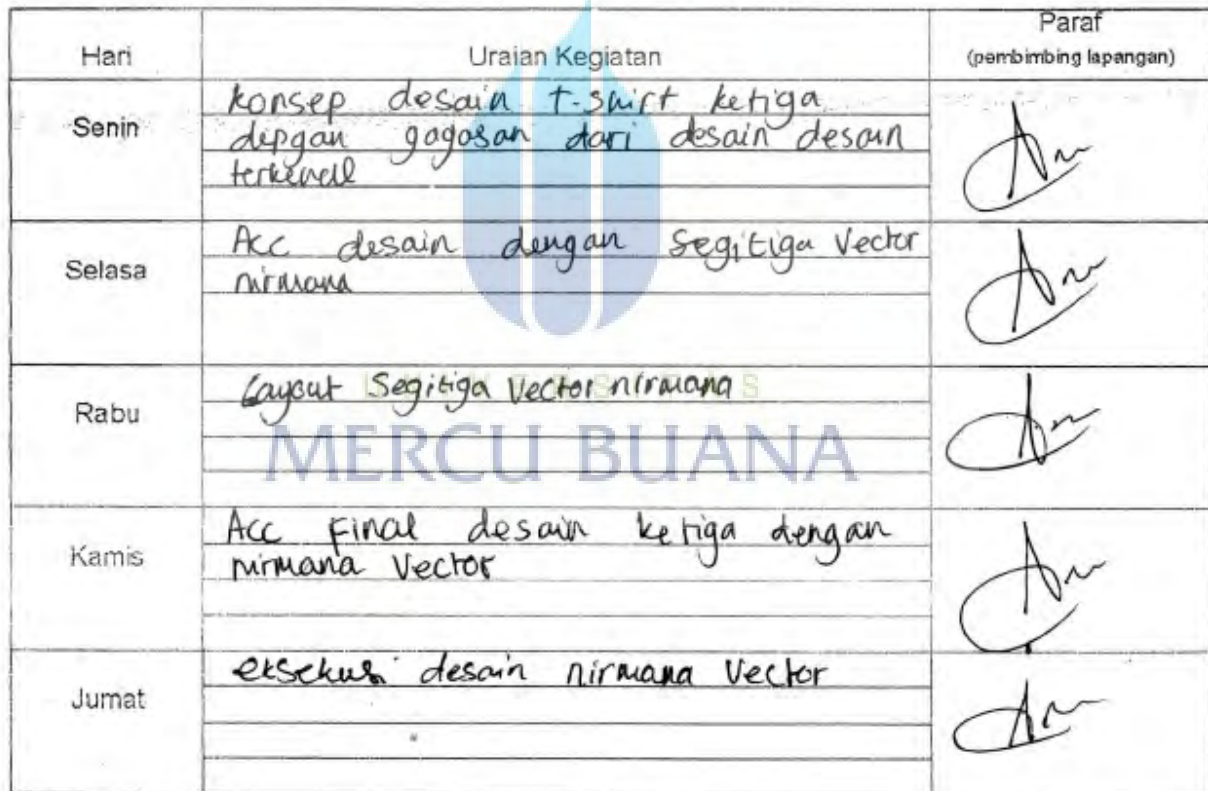 Hari Uraian Kegiatan Paraf
(pembimbing lapangan)
Senin
konsep desain t-shirt ketiga
dengan gagasan dari desain desain
terkenal
Selasa
Acc desain dengan Segitiga Vector
nirmana
Rabu
Layout Segitiga Vector nirmana
UNIVERSITAS
MERCU BUANA
Kamis
Acc Final desain ketiga dengan
nirmana Vector
Jumat
eksekusi desain nirmana Vector